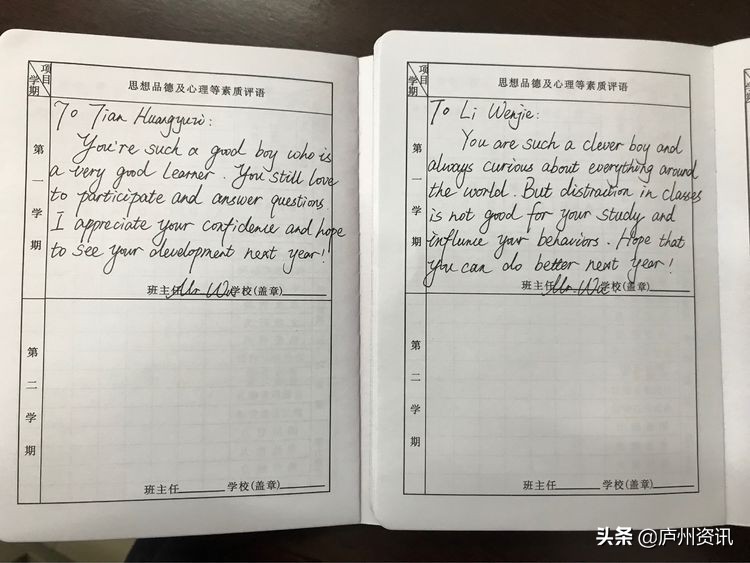 项目
学期
思想品德及心理等素质评语
第一学期
To Tian Huangyuzi:
You're such a good boy who is
a very good learner. You still love
to participate and answer questions.
I appreciate your confidence and hope
to see your development next year!
班主任 Mr. Wu 学校(盖章)
第二学期
班主任 学校(盖章)
项目
学期
思想品德及心理等素质评语
第一学期
To Li Wenjie:
You are such a clever boy and
always curious about everything around
the world. But distraction in classes
is not good for your study and
influence your behaviors. Hope that
you can do better next year!
班主任 Mr. Wu 学校(盖章)
第二学期
班主任 学校(盖章)
头条 @庐州资讯